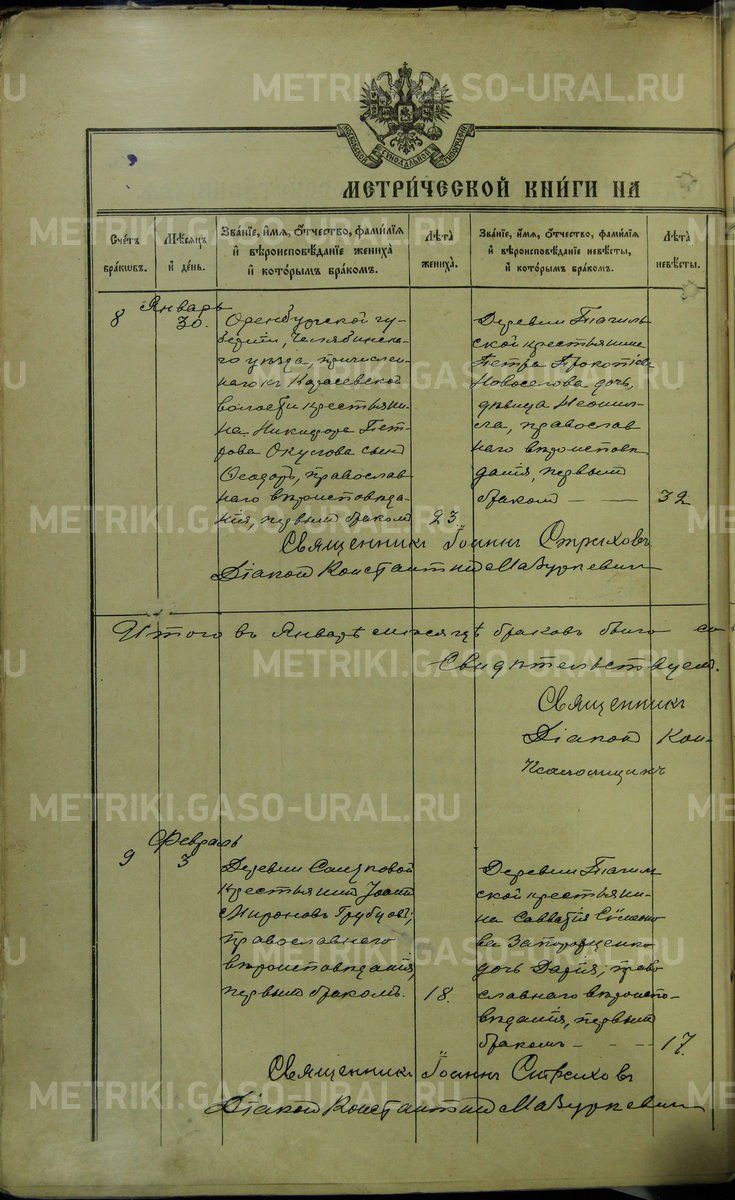 МОСКОВСКОЙ СѴНОДАЛЬНОЙ ТИПОГРАФІИ
МЕТРИ́ЧЕСКОЙ КНИ́ГИ НА
Сче́тъ бра́кѡвъ.
Мѣ́сяцъ и҆ де́нь.
Зва́ніе, и҆́мѧ, ѻ҆́тчество, фами́лїѧ
и҆ вѣроисповѣ́данїе жениха̀
и҆ кото́рымъ бра́комъ.
Лѣ́та жениха̀.
Зва́ніе, и҆́мѧ, ѻ҆́тчество, фами́лїѧ
и҆ вѣроисповѣ́данїе невѣ́сты,
и҆ кото́рымъ бра́комъ.
Лѣ́та невѣ́сты.
8
Январь
30.
Оренбургской гу-
берніи, Челябинска-
го уѣзда, причислен-
наго къ Карасевской
волости крестьяни-
на Никифора Пет
рова Окулова сынъ
Ѳеодоръ, православ
наго вѣроисповѣда-
нія, первымъ бракомъ
23
Деревни Тагиль
ской крестьянина
Петра Прокопіева
Новоселова дочь,
дѣвица Неонил-
ла, православ
наго вѣроисповѣ
данія, первымъ
бракомъ
32
Священникъ Іоаннъ Стриховъ
Діаконъ Константинъ Мазуркевичъ
Итого въ Январѣ мѣсяцѣ браковъ было со
Свидѣтельствуемъ.
Священникъ
Діаконъ Кон-
Псаломщикъ
9
Февраль
3
Деревни
крестьянинъ Іоаннъ
Мироновъ Трубцовъ,
православнаго
вѣроисповѣданія,
первымъ бракомъ.
18.
Деревни Тагиль
ской крестьяни-
на Савватія Симено
ва Запорощенко
дочь Дарія, право
славнаго вѣроиспо-
вѣданія, первымъ
бракомъ
17.
Священникъ Іоаннъ Стриховъ
Діаконъ Константинъ Мазуркевичъ
METRIKI.GASO-URAL.RU